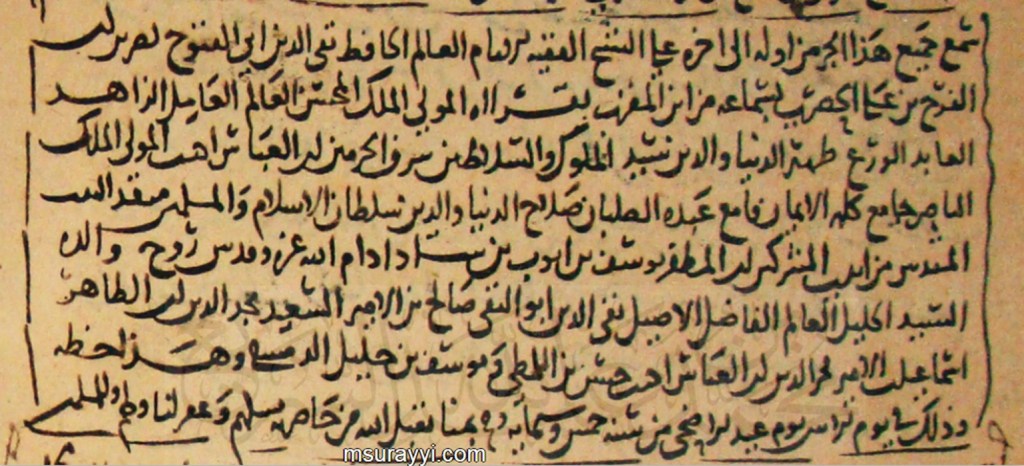 سمع جميع هذا الجزء من اوله الى اخره على الشيخ الفقيه الامام العالم الحافظ تقي الدين ابي الفتوح نصر بن ابي
الفرج بن علي الحصري بسماعه من ابن المقرب بقراءه المولى الملك المحسن العالم العامل الزاهد
العابد الورع ظهير الدنيا والدين سيد الملوك والسلاطين شرف الحرمين ابي العباس احمد المولى الملك
الناصر جامع كلمه الايمان قامع عبده الصلبان صلاح الدنيا والدين سلطان الاسلام والمسلمين منقذ البيت
المقدس من ايدي المشركين ابي المظفر يوسف بن ايوب بن شاذ ادام الله عزه وقدس روح والده
السيد الجليل العالم الفاضل الاصيل تقي الدين ابو التقى صالح بن الامير السعيد مجد الدين ابي الطاهر
اسماعيل الامير فخر الدين ابي العباس احمد حسن بن اللمطي ويوسف بن خليل الدمشقي وهذا خطه
وذلك في يوم يوم عيد الاضحى من سنه خمس وستمايه بمنا تقبل الله من حاضريهم وغفر لنا ولهم وللمسلمين
msurayyi.com